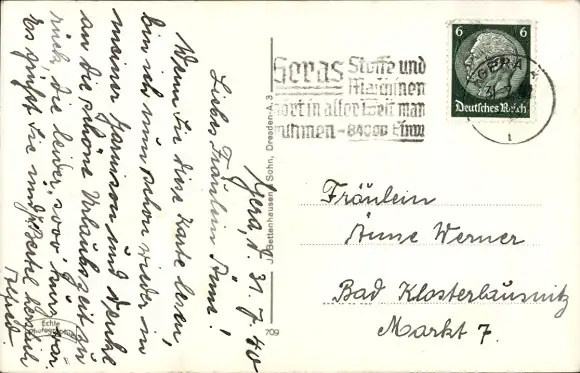 Gera, d. 31. 7. 40
Liebes Fräulein Änne!
Wenn Sie diese Karte lesen,
bin ich nun schon wieder in
meiner Garnison und denke
an die schöne Urlaubszeit zu
rück, die leider, zwar kurz war.
Es grüßt Sie und Bertel herzlich
Echte
Photographie
J. Bettenhausen & Sohn, Dresden-A. 3
709
Geras Stoffe und
Maschinen
hört in aller Welt man
rühmen - 84000 Einw
GERA
31. 7.
1
6 6
Deutsches Reich
Fräulein
Änne Werner
Bad Klosterlausnitz
Markt 7.